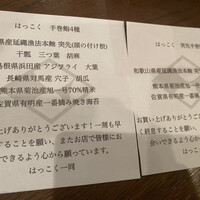 はっこく 手巻鮨4種
県産延縄漁法本鮪 突先(頭の付け根)
干瓢 三つ葉 胡麻
島根県浜田産 アジフライ 大葉
長崎県対馬産 穴子 胡瓜
熊本県菊池産旭一号70%精米
佐賀県有明産一番摘み焼き海苔
上げありがとうございます！一刻も早
することを願い、またお店で皆様にお
できるよう心から願っています。
はっこく一同
はっこく 手巻鮨
和歌山県産延縄漁法本鮪 突先
熊本県菊池産旭一号
佐賀県有明産一番摘
お買い上げありがとうござい
く終息することを願い、
会いできるよう心か
はっこく